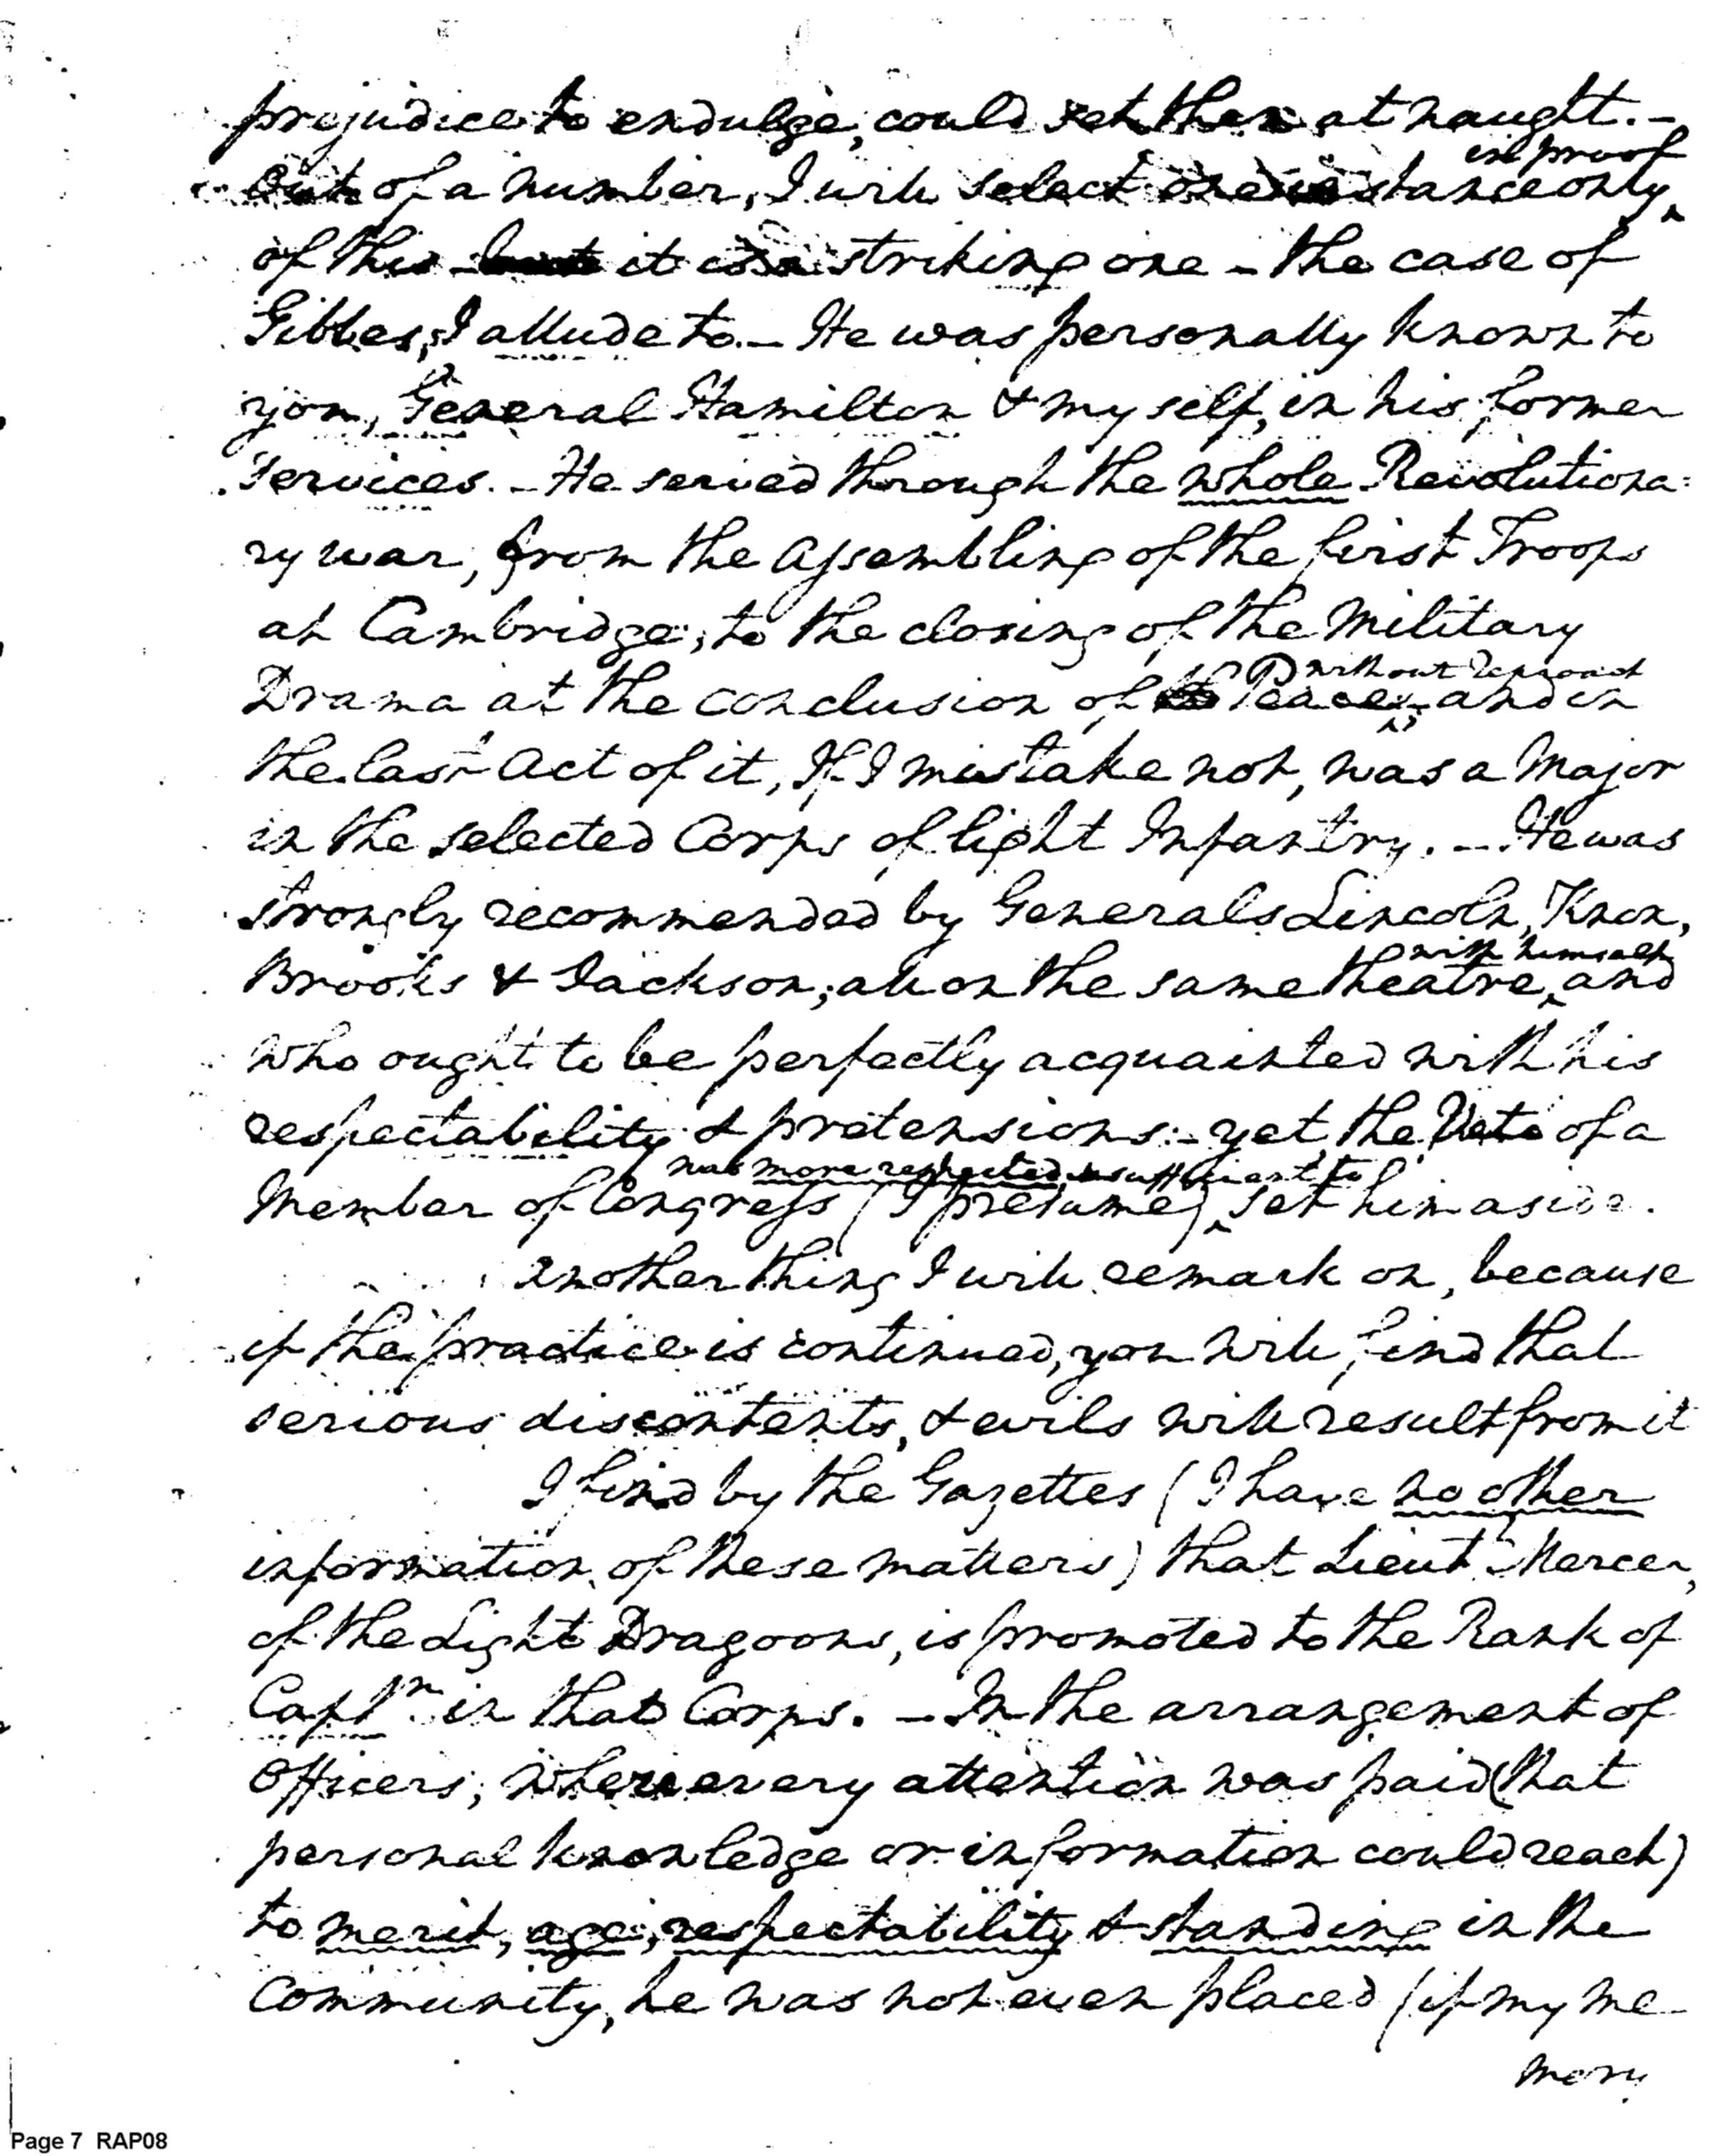 prejudice to endulge, could set them at naught. –
in proof
Out of a number, I will select one instance only
of this – but it is a striking one – the case of
Gibbes, I allude to. – He was personally known to
you, General Hamilton & myself, in his former
services. – He served through the whole Revolutiona=
ry war, from the Assembling of the first Troops
at Cambridge, to the closing of the Military
without reproach
Drama at the conclusion of Peace, and in
the last Act of it, If I mistake not, was a Major
in the selected Corps of light Infantry. – He was
strongly recommended by Generals Lincoln, Knox,
with himself
Brooks & Jackson; all on the same theatre, and
who ought to be perfectly acquainted with his
respectability & pretensions: – yet, the Veto of a
was more respected, & sufficient to
Member of Congress (I presume) set him aside.
Another thing I will remark on, because
if the practice is continued, you will find that
serious discontents, & evils will result from it
I find by the Gazettes (I have no other
information of these matters) that Lieut. Mercer,
of the Light Dragoons, is promoted to the Rank of
Captn in that Corps. – In the arrangement of
Officers, where every attention was paid (that
personal knowledge or information could reach)
to merit, age, respectability & standing in the
Community, he was not even placed (if my me
mory
Page 7 RAP08